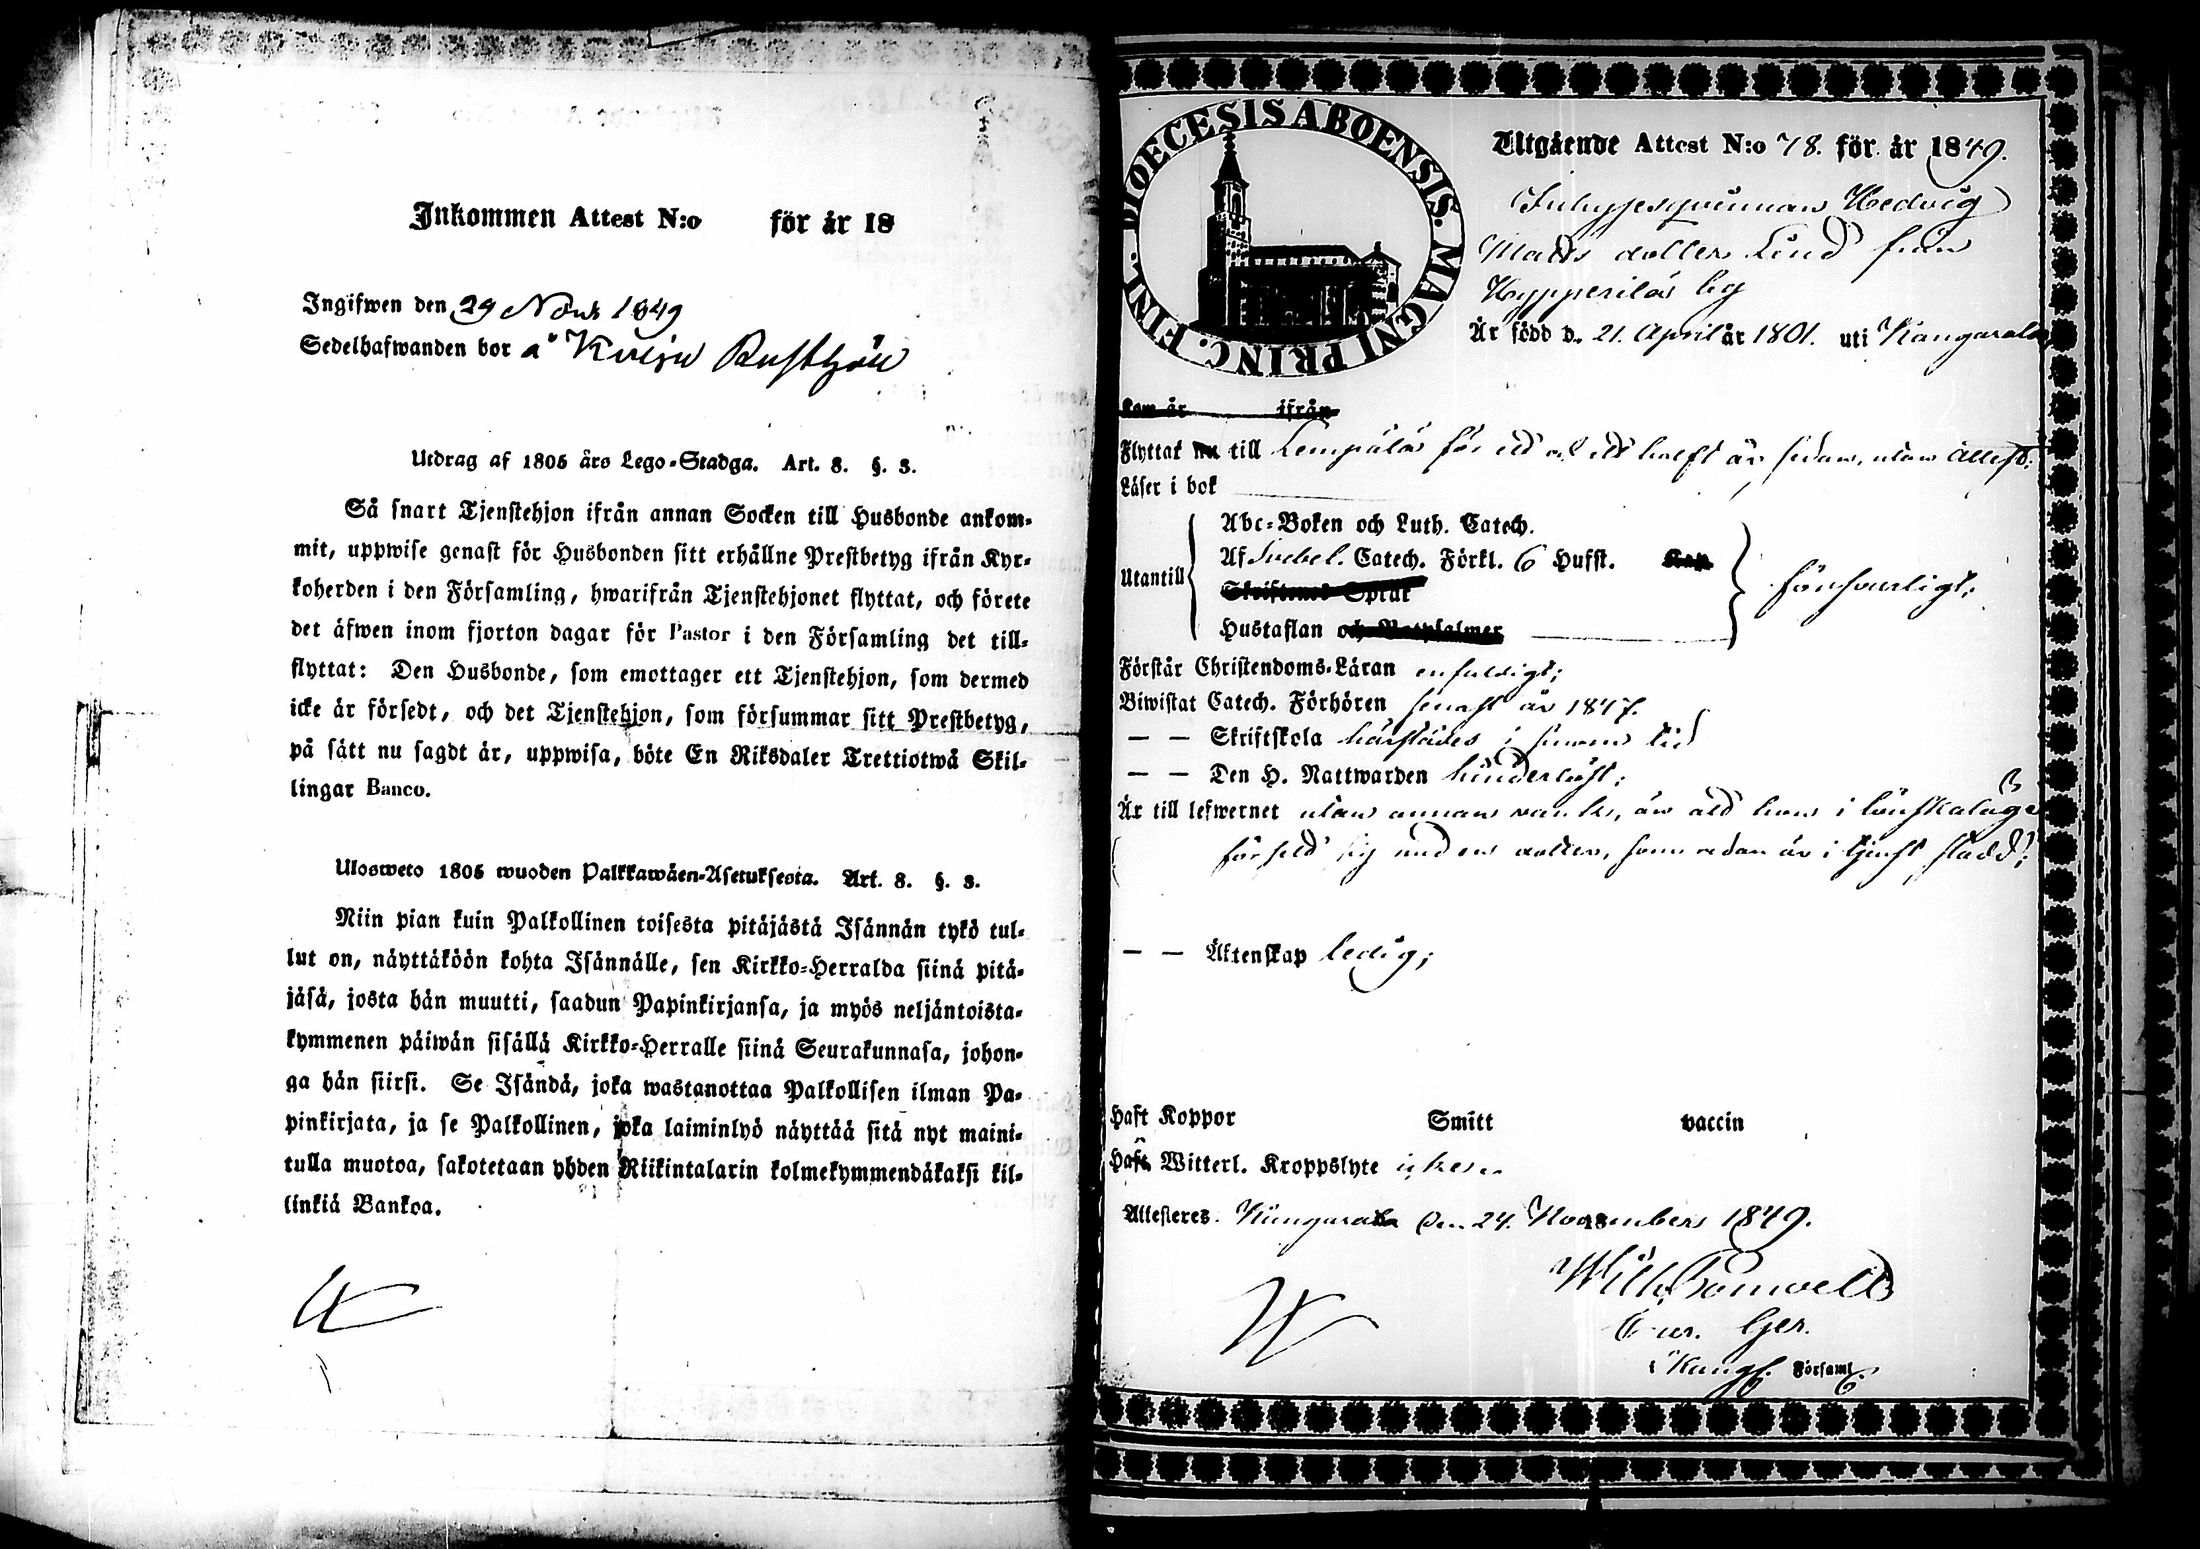 Inkommen Attest N:o för år 18
Ingifwen den 29 Novbr 1849
Sedelhafwanden bor å Kuljn Rusthåll
Utdrag af 1805 års Lego-Stadga. Art. 8. §. 3.
Så snart Tjenstehjon ifrån annan Socken till Husbonde ankom-
mit, uppwise genast för Husbonden sitt erhållne Prestbetyg ifrån Kyr-
koherden i den Församling, hwarifrån Tjenstehjonet flyttat, och förete
det äfwen inom fjorton dagar för Pastor i den Församling det till-
flyttat: Den Husbonde, som emottager ett Tjenstehjon, som dermed
icke är försedt, och det Tjenstehjon, som försummar sitt Prestbetyg,
på sätt nu sagdt är, uppwisa, böte En Riksdaler Trettiotwå Skil-
lingar Banco.
Ulosweto 1805 wuoden Palkkawäen-Asetuksesta. Art. 8. §. 3.
Niin pian kuin Palkollinen toisesta pitäjästä Isännän tykö tul-
lut on, näyttäköön kohta Isännälle, sen Kirkko-Herralda siinä pitä-
jäsä, josta hän muutti, saadun Papinkirjansa, ja myös neljäntoista-
kymmenen päiwän sisällä Kirkko-Herralle siinä Seurakunnasa, johon-
ga hän siirsi. Se Isändä, joka wastanottaa Palkollisen ilman Pa-
pinkirjata, ja se Palkollinen, joka laiminlyö näyttää sitä nyt maini-
tulla muotoa, sakotetaan yhden Riikintalarin kolmekymmendäkaksi kil-
linkiä Bankoa.
DIOECESIS ABOENSIS. MAGNI PRINC. FINL.
Utgående Attest N:o 78. för år 1849.
Inhysesqvinnan Hedvig
Matts dotter Lind från
Hypperilä by
Är född d. 21. April år 1801. uti Kangasala
Kom år ifrån
Flyttat nu till Lempälä för ett och ett halft år sedan, utan attest;
Läser i bok
Utantill
Abc-Boken och Luth. Catech.
Af Svebel. Catech. Förkl. 6 Hufst. Kap.
Skriftenes Språk
Hustaflan och Botpsalmer
försvarligt;
Förstår Christendoms-Läran enfaldigt;
Biwistat Catech. Förhören senast år 1847.
— — Skriftskola härstädes i sinom tid
— — Den H. Nattwarden hinderlöst;
Är till lefwernet utan annan vank, än att hon i lönskaläge
försett sig med en dotter, som redan är i tjenst stadd;
— — Äktenskap ledig;
Haft Koppor Smitt vaccin
Haft Witterl. Kroppslyte icke
Attesteres. Kangasala den 24. November 1849.
Wilh.
i Kangs. Församl.